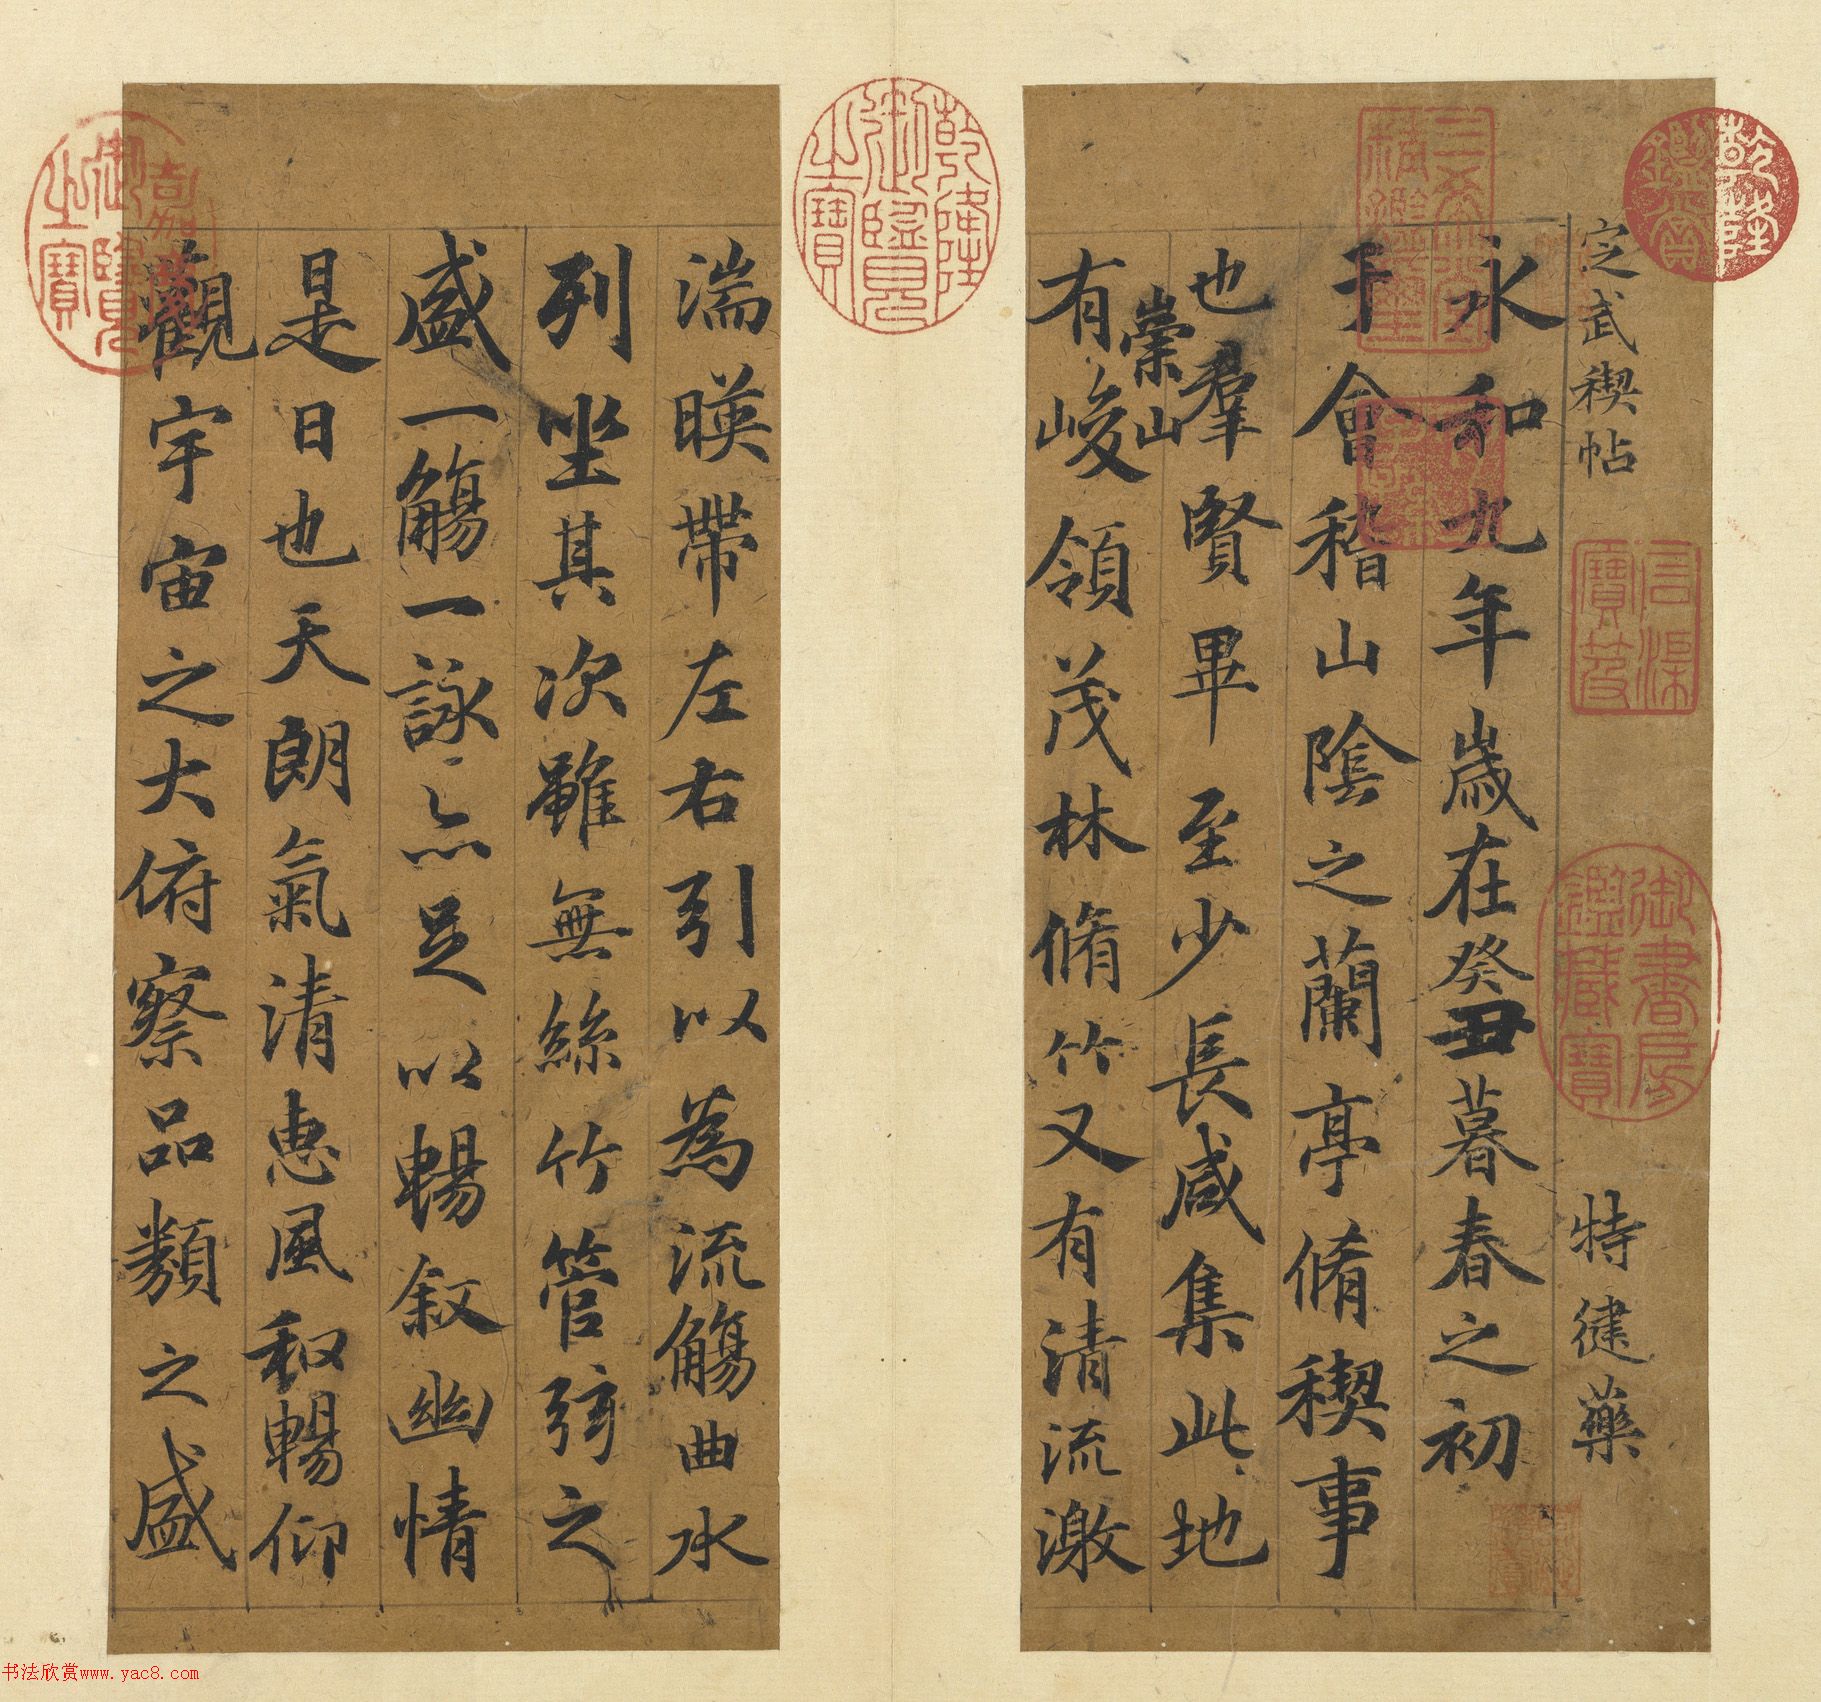 定武禊帖
特健藥
永和九年歲在癸丑暮春之初
于會稽山陰之蘭亭脩禊事
也羣賢畢至少長咸集此地
崇山
有峻領茂林脩竹又有清流激
湍暎帶左右引以為流觴曲水
列坐其次雖無絲竹管弦之
盛一觴一詠亦足以暢叙幽情
是日也天朗氣清惠風和暢仰
觀宇宙之大俯察品類之盛
乾隆鑑賞
三希堂精鑑璽
宜子孫
石渠寶笈
御書房鑑藏寶
乾隆御覽之寶
嘉慶御覽之寶
书法欣赏www.yac8.com